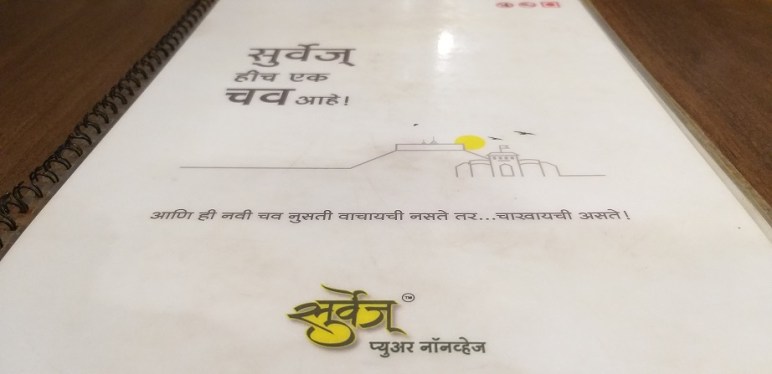 सुर्वेज्
हीच एक
चव आहे!
आणि ही नवी चव नुसती वाचायची नसते तर...चाखायची असते!
सुर्वेज् ™
प्युअर नॉनव्हेज